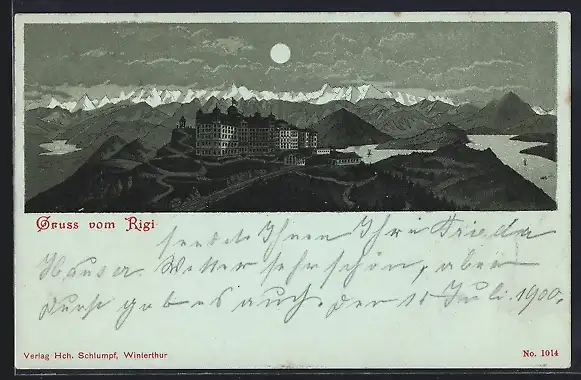 Gruss vom Rigi
sendet Ihnen Ihre Frieda
Hauser. Wetter sehr schön, aber
Durst gab es auch. Der 11 Juli. 1900.
Verlag Hch. Schlumpf, Winterthur
No. 1014